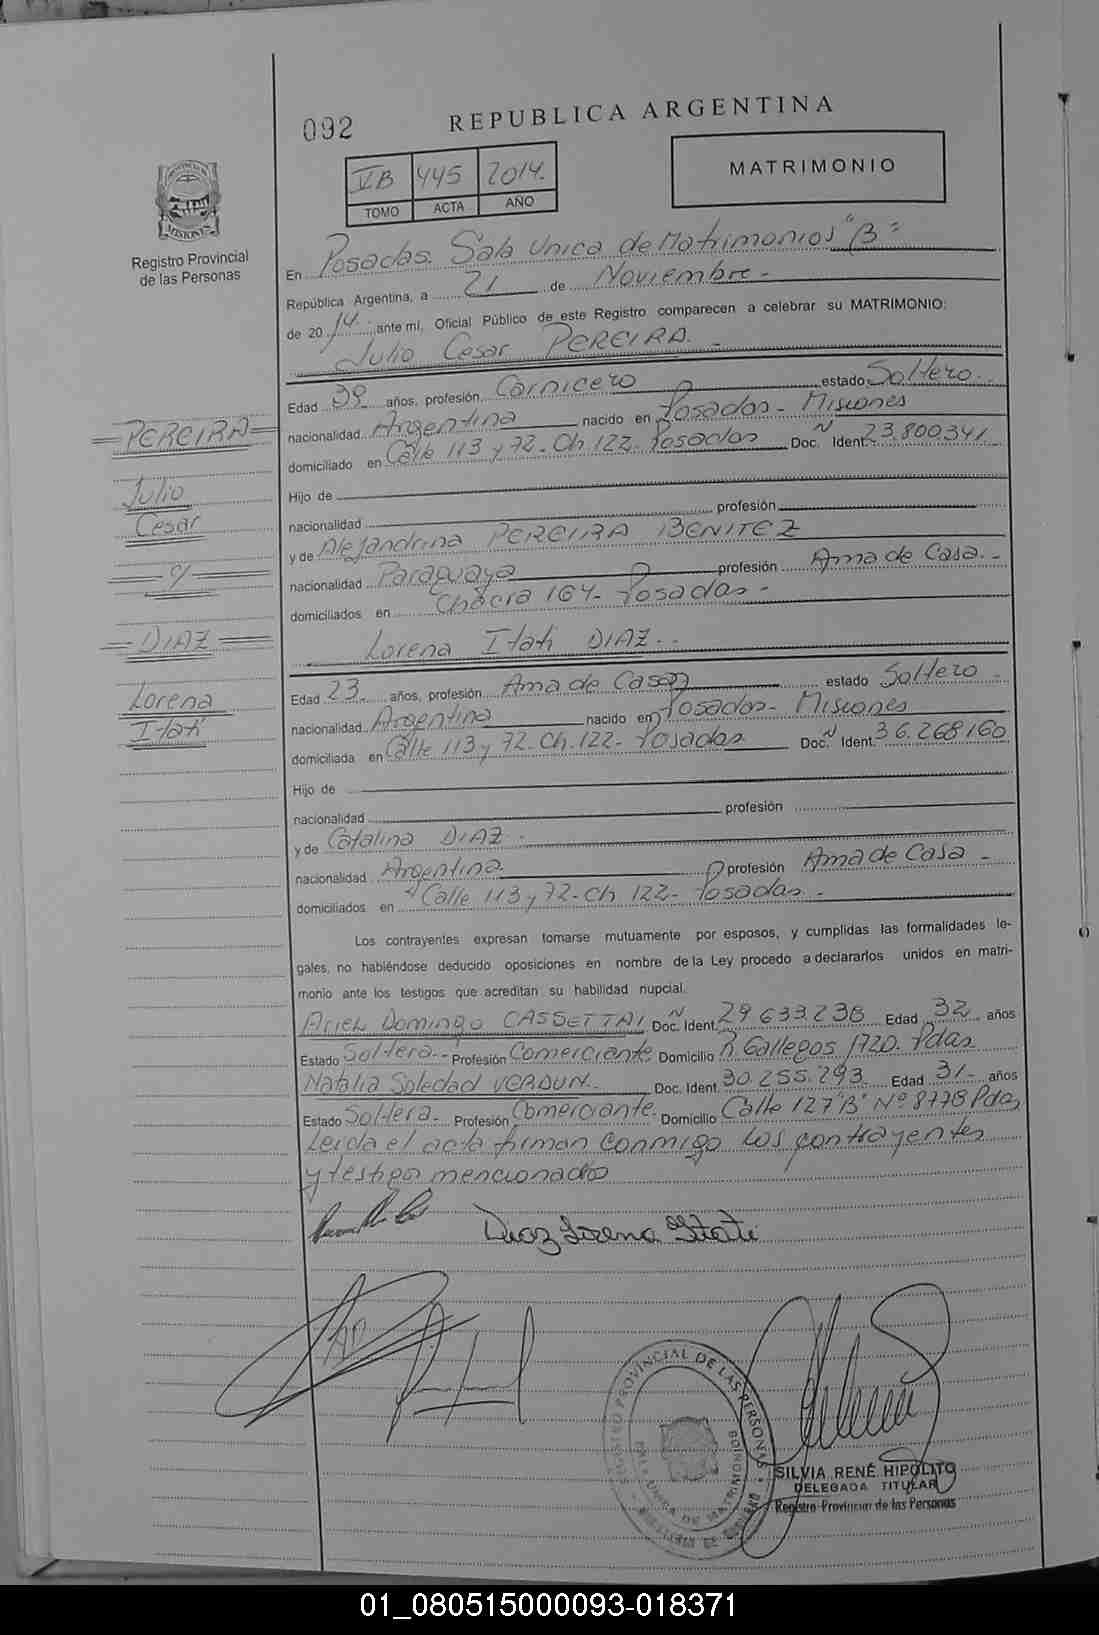 092
REPUBLICA ARGENTINA
VB 445 2014.
TOMO ACTA AÑO
MATRIMONIO
MISIONES
Registro Provincial
de las Personas
En Posadas. Sala Unica de Matrimonios "B"
República Argentina, a 21 de Noviembre -
de 2014. ante mí, Oficial Público de este Registro comparecen a celebrar su MATRIMONIO:
Julio Cesar PEREIRA. -
Edad 39 años, profesión Carnicero estado Soltero.
nacionalidad Argentina nacido en Posadas - Misiones
domiciliado en Calle 113 y 72 - Ch. 122 - Posadas Doc. N Ident. 23.800.341
Hijo de
nacionalidad profesión
y de Alejandrina PEREIRA BENITEZ
nacionalidad Paraguaya profesión Ama de Casa. -
domiciliados en Chacra 164 - Posadas -
Lorena Itati DIAZ. -
Edad 23 años, profesión Ama de Casa estado Soltero
nacionalidad Argentina nacido en Posadas - Misiones
domiciliada en Calle 113 y 72 - Ch. 122 - Posadas Doc. N Ident. 36.268.160
Hijo de
nacionalidad profesión
y de Catalina DIAZ -
nacionalidad Argentina. profesión Ama de Casa -
domiciliados en Calle 113 y 72 - Ch 122 - Posadas -
Los contrayentes expresan tomarse mutuamente por esposos, y cumplidas las formalidades le-
gales, no habiéndose deducido oposiciones en nombre de la Ley procedo a declararlos unidos en matri-
monio ante los testigos que acreditan su habilidad nupcial.
Ariel Domingo CASSETTAI Doc. N Ident. 29.633.238 Edad 32 años
Estado Soltera - Profesión Comerciante Domicilio R. Gallegos 1720. Pdas
Natalia Soledad VERDUN. Doc. Ident. 30.255.293 Edad 31 - años
Estado Soltera - Profesión Comerciante. Domicilio Calle 127 "B" Nº 8778 Pdas
Leida el acta firman conmigo los contrayentes
y testigos mencionados
Diaz Lorena Itati
PEREIRA
Julio
Cesar
c/
DIAZ
Lorena
Itati
REGISTRO PROVINCIAL DE LAS PERSONAS
SILVIA RENÉ HIPOLITO
DELEGADA TITULAR
Registro Provincial de las Personas
01_080515000093-018371